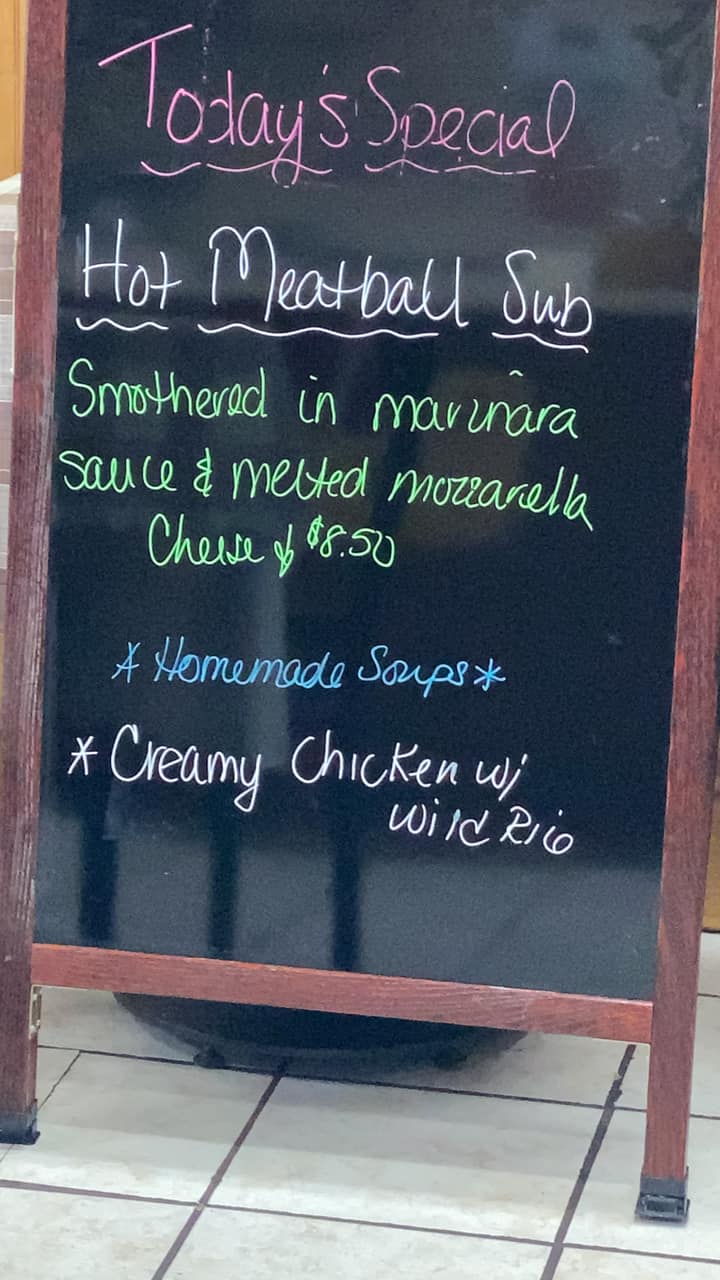 Today's Special
Hot Meatball Sub
Smothered in marinara
sauce & melted mozzarella
Cheese $8.50
* Homemade Soups *
* Creamy Chicken w/
Wild Rice